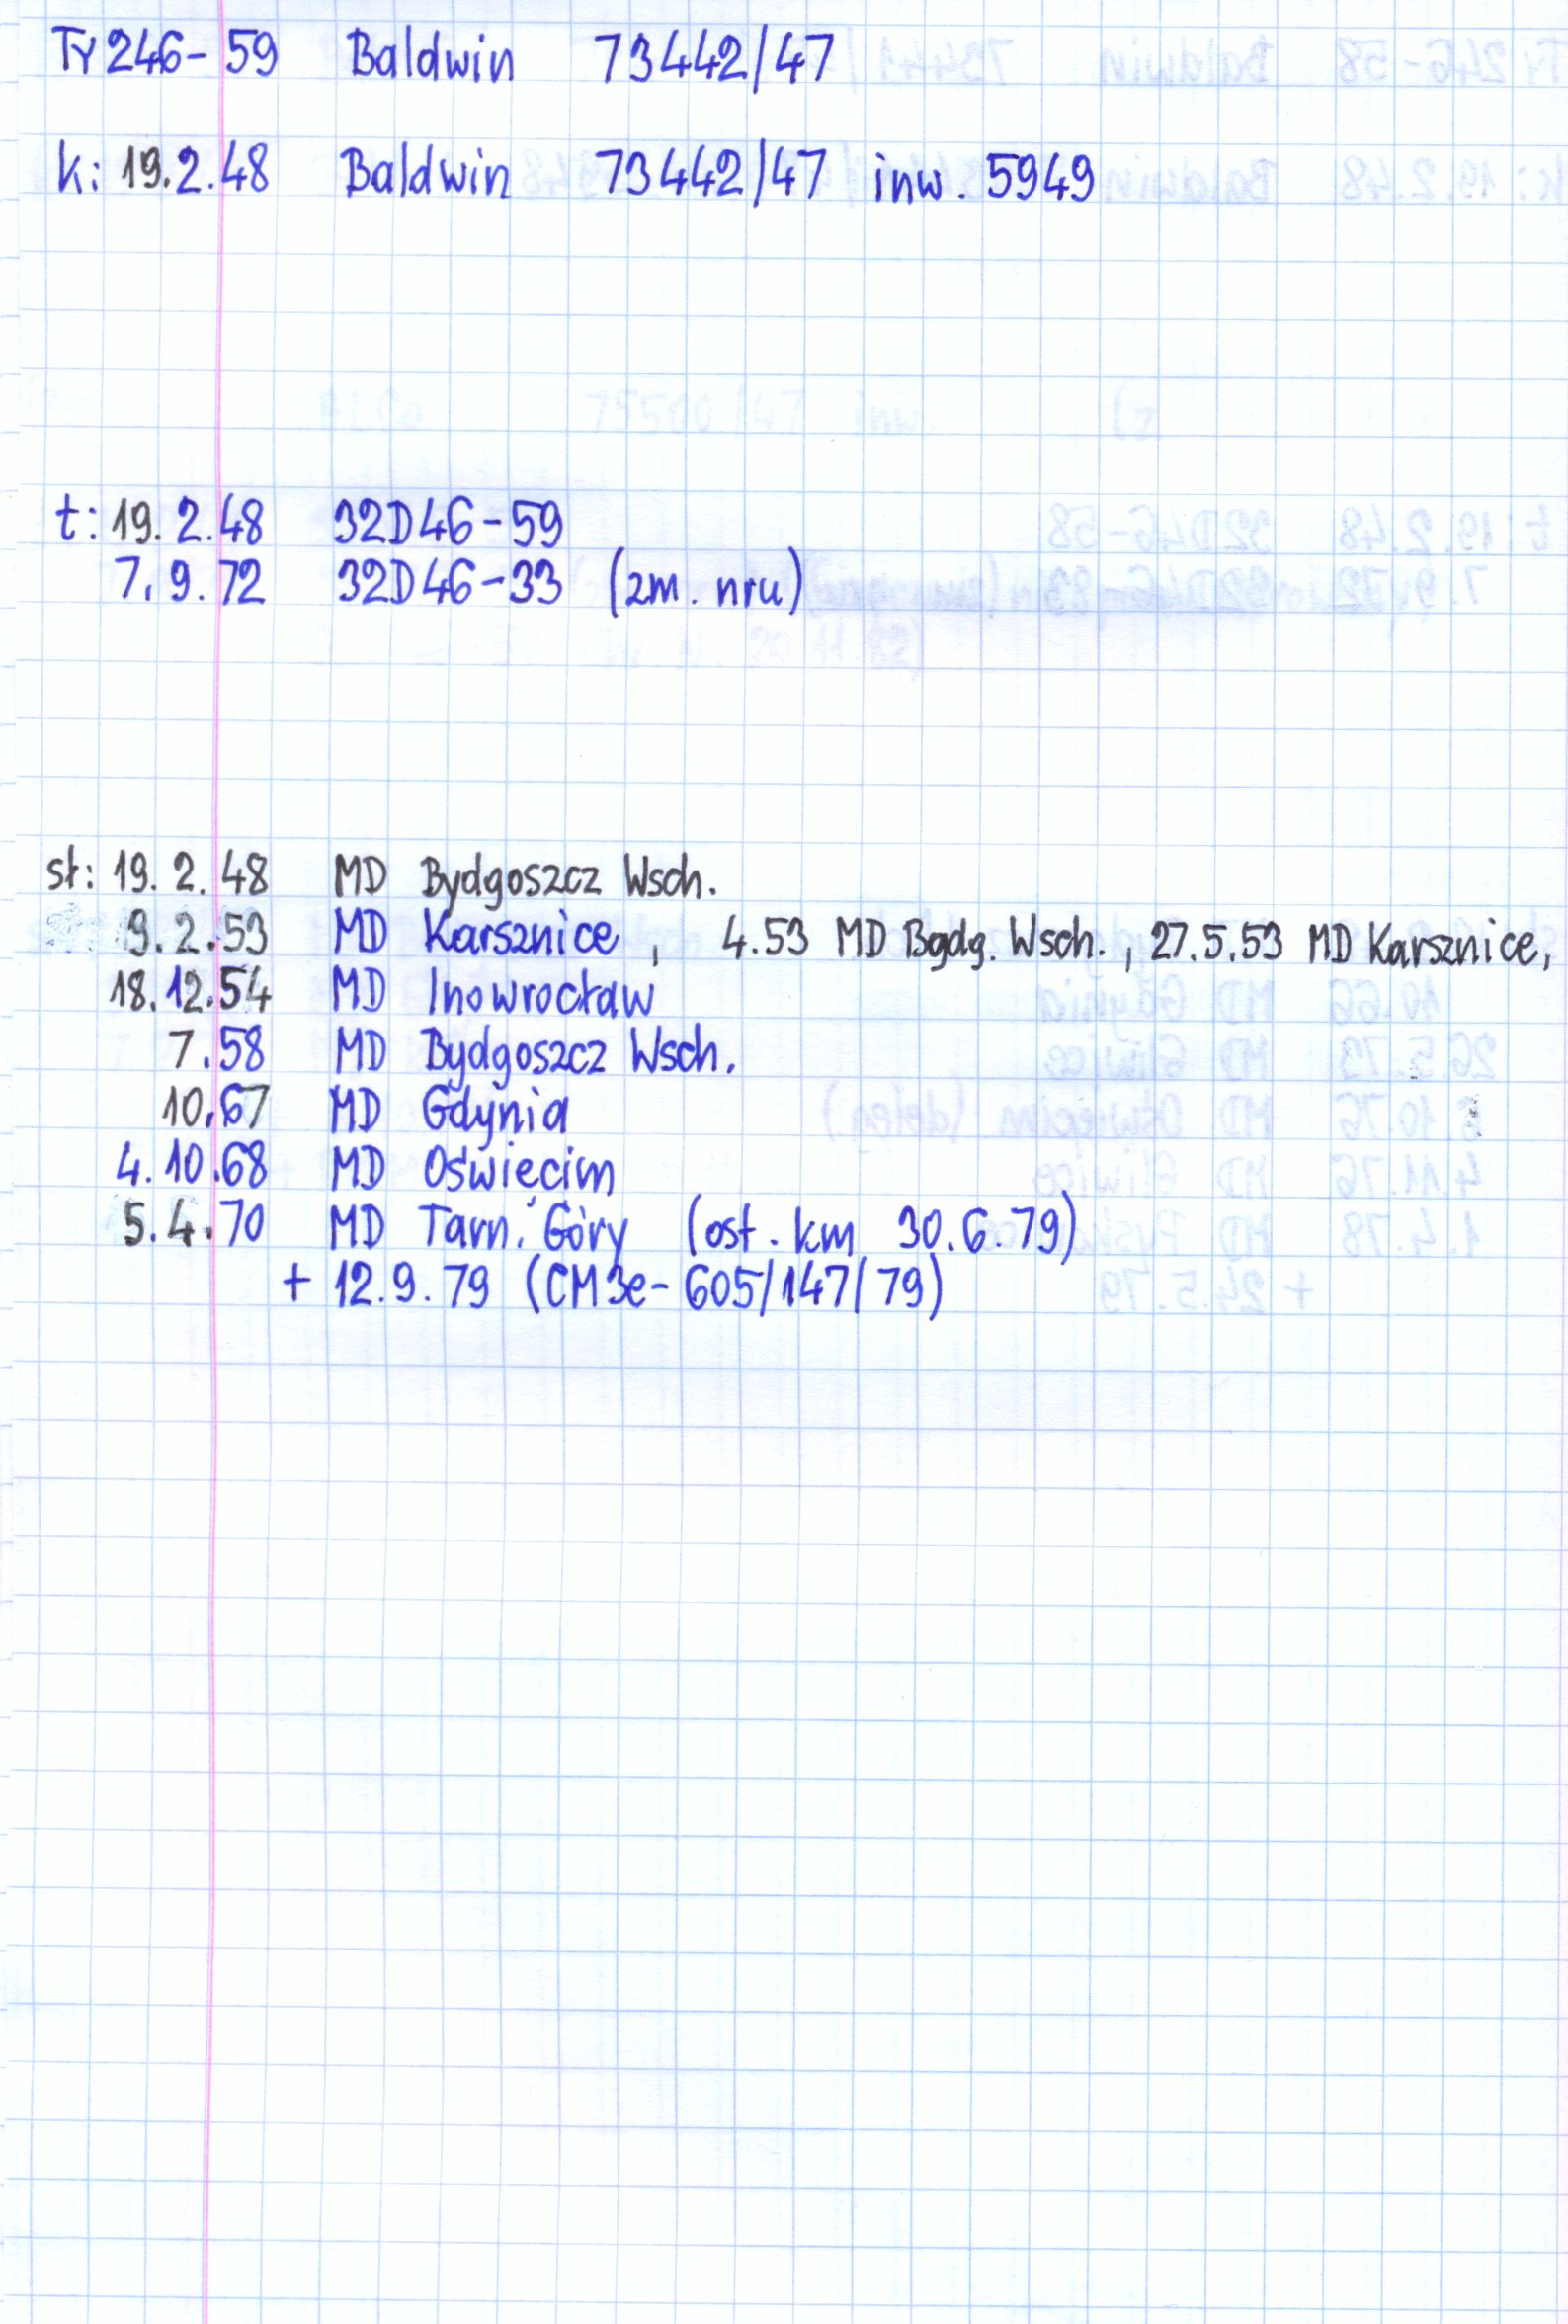 Ty246-59 Baldwin 73442/47
k: 19.2.48 Baldwin 73442/47 inw. 5949
t: 19.2.48 32D46-59
7.9.72 32D46-33 (zm. nru)
st: 19.2.48 MD Bydgoszcz Wsch.
9.2.53 MD Karsznice, 4.53 MD Bgdg. Wsch., 27.5.53 MD Karsznice,
18.12.54 MD Inowrocław
7.58 MD Bydgoszcz Wsch.
10.67 MD Gdynia
4.10.68 MD Oświęcim
5.4.70 MD Tarn. Góry (ost. km 30.6.79)
+ 12.9.79 (CM3e-605/147/79)